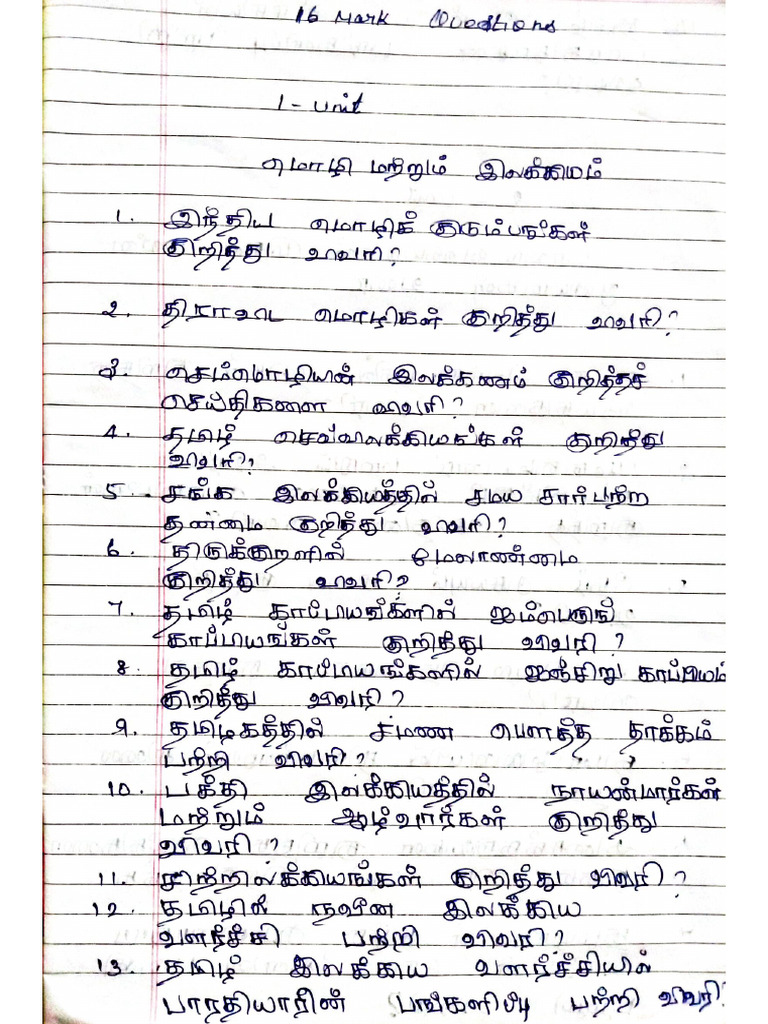 16 Mark Questions
1 - Unit
மொழி மற்றும் இலக்கியம்
1. இந்திய மொழிக் குடும்பங்கள்
குறித்து விவரி?
2. திராவிட மொழிகள் குறித்து விவரி?
3. செம்மொழியின் இலக்கணம் குறித்தச்
செய்திகளை விவரி?
4. தமிழ் செவ்விலக்கியங்கள் குறித்து
விவரி?
5. சங்க இலக்கியத்தில் சமய சார்பற்ற
தன்மை குறித்து விவரி?
6. திருக்குறளில் மேலாண்மை
குறித்து விவரி?
7. தமிழ் காப்பியங்களில் ஐம்பெருங்
காப்பியங்கள் குறித்து விவரி?
8. தமிழ் காப்பியங்களில் ஐஞ்சிறு காப்பியம்
குறித்து விவரி?
9. தமிழகத்தில் சமண பௌத்த தாக்கம்
பற்றி விவரி?
10. பக்தி இலக்கியத்தில் நாயன்மார்கள்
மற்றும் ஆழ்வார்கள் குறித்து
விவரி?
11. சிற்றிலக்கியங்கள் குறித்து விவரி?
12. தமிழில் நவீன இலக்கிய
வளர்ச்சி பற்றி விவரி?
13. தமிழ் இலக்கிய வளர்ச்சியில்
பாரதியாரின் பங்களிப்பு பற்றி விவரி?